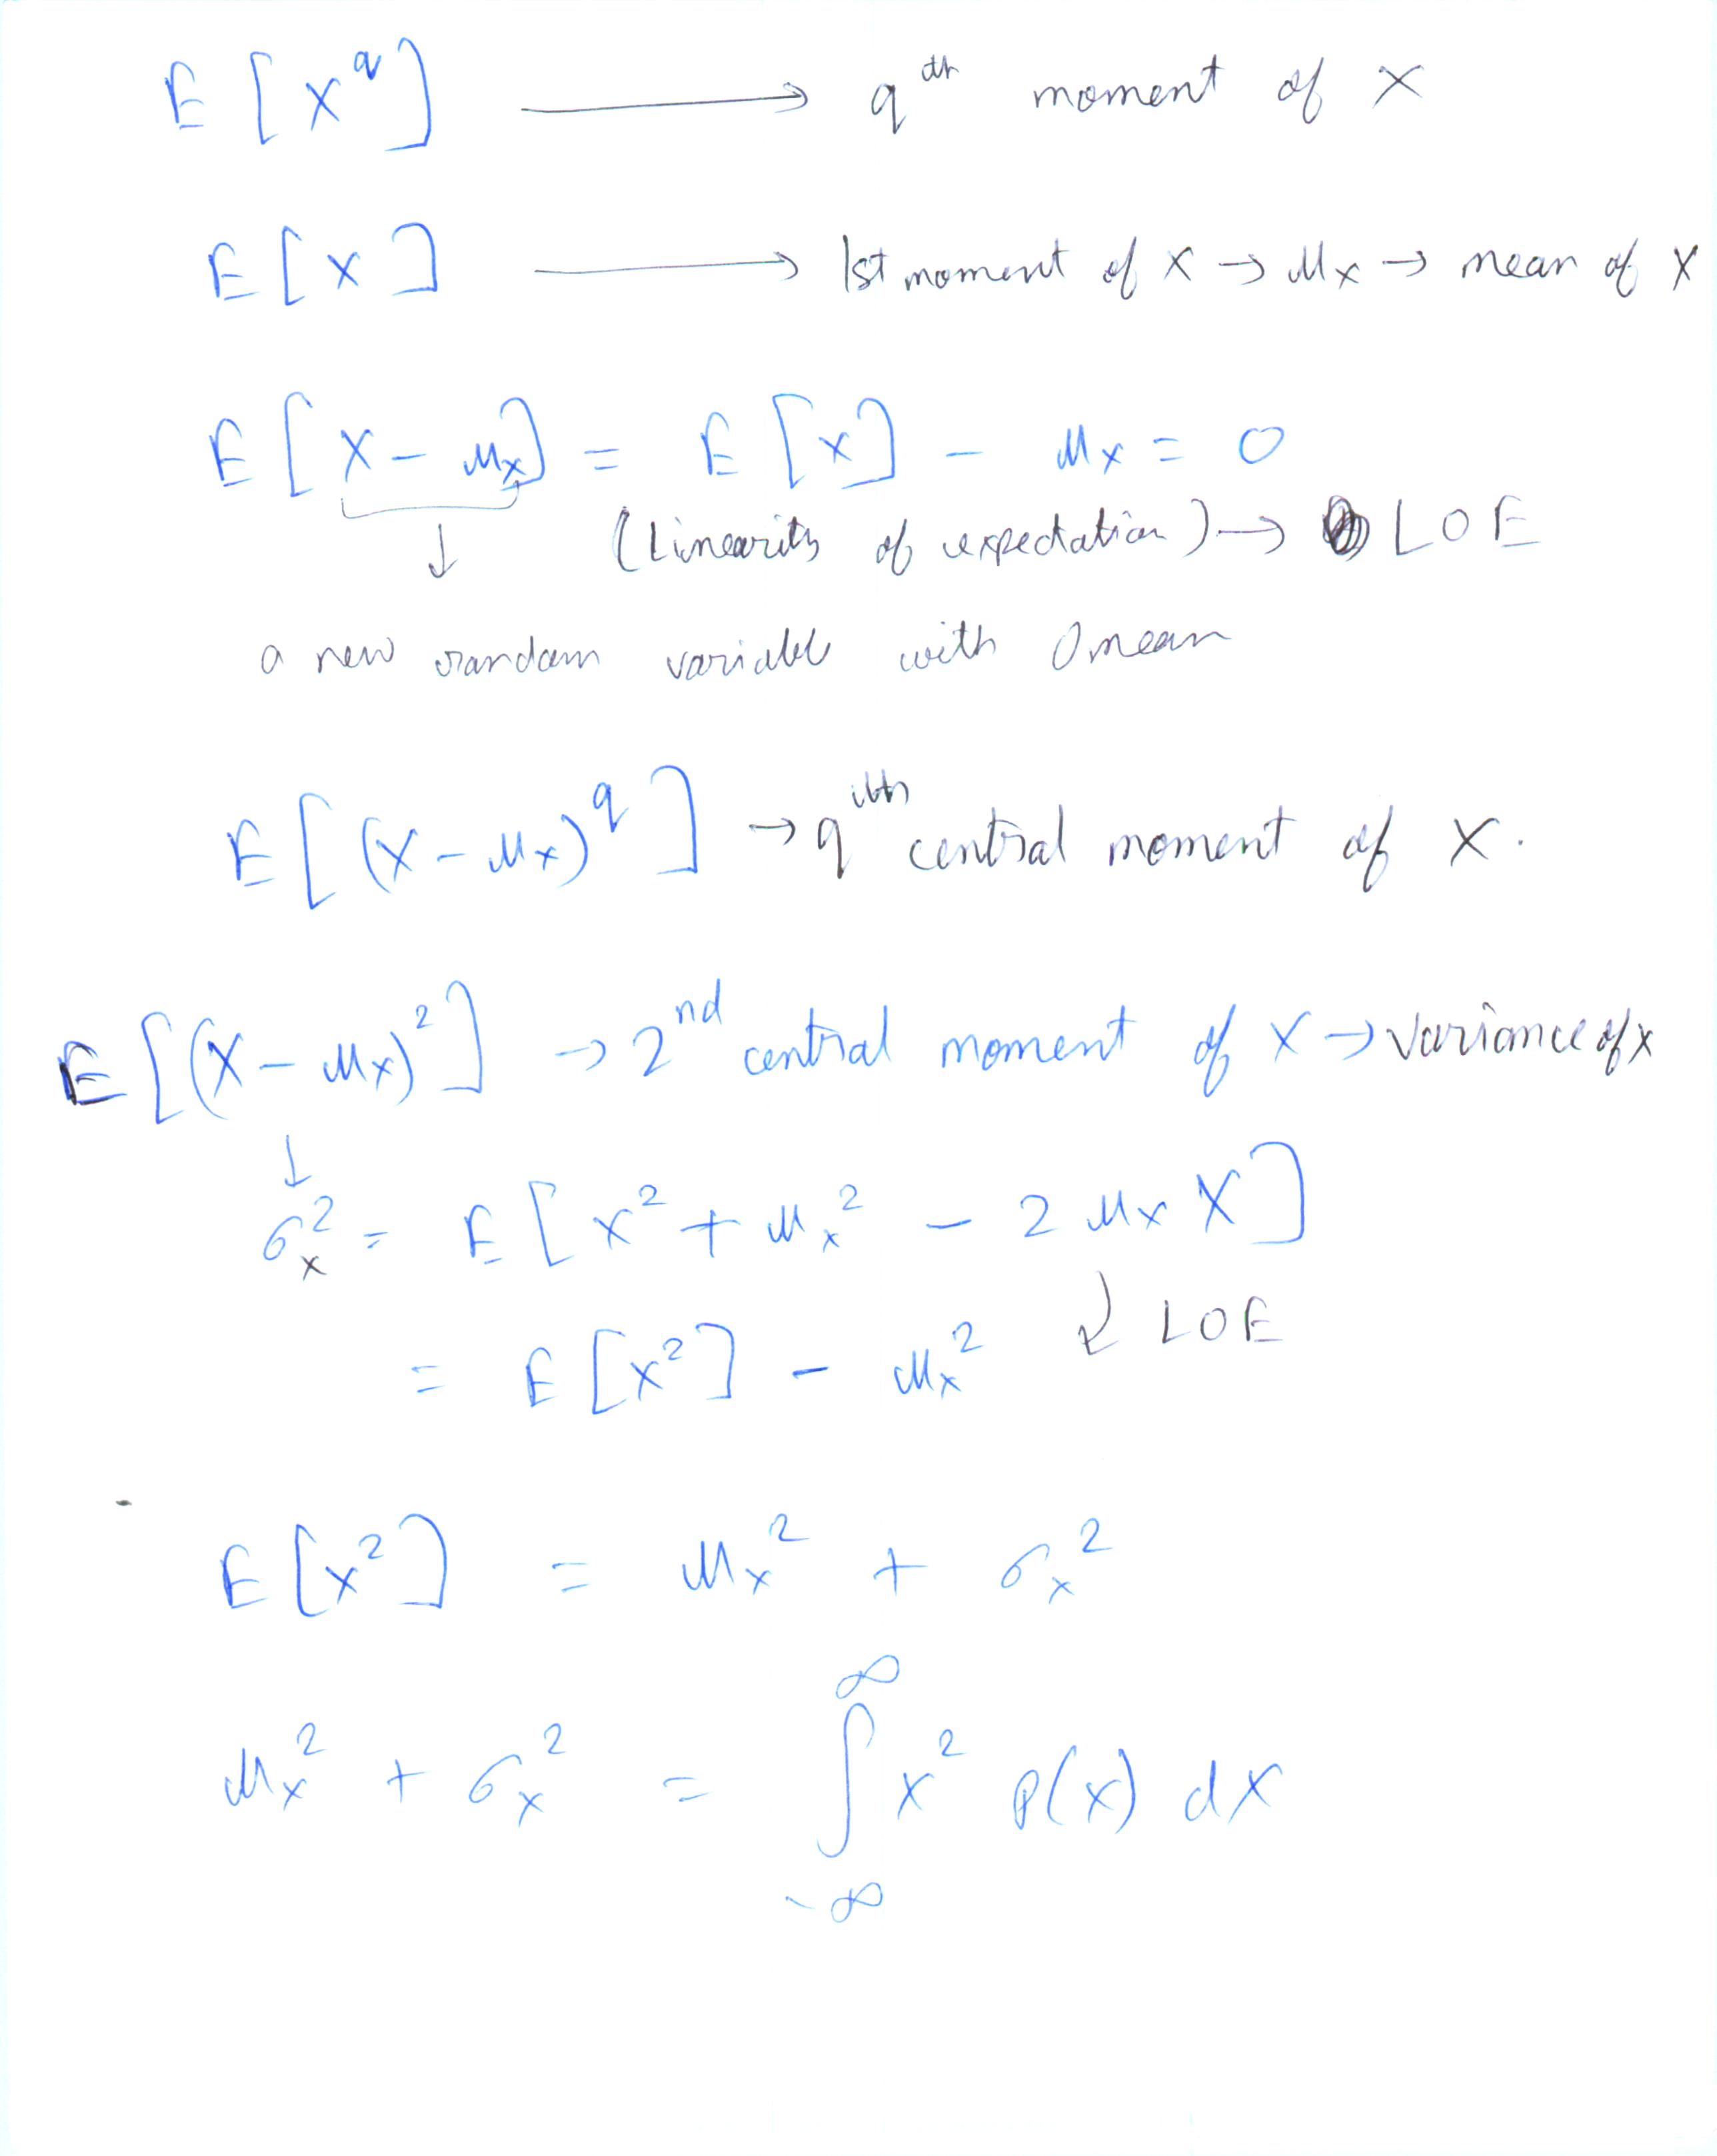 E[X^q] → q^th moment of X
E[X] → 1st moment of X → μ_x → mean of X
E[X - μ_x] = E[X] - μ_x = 0
↓ (Linearity of expectation) → LOE
a new random variable with 0 mean
E[(X - μ_x)^q] → q^th central moment of X.
E[(X - μ_x)^2] → 2^nd central moment of X → variance of x
↓
σ_x^2 = E[X^2 + μ_x^2 - 2 μ_x X]
= E[X^2] - μ_x^2 ↙ LOE
E[X^2] = μ_x^2 + σ_x^2
μ_x^2 + σ_x^2 = ∫_{-∞}^{∞} x^2 p(x) dx